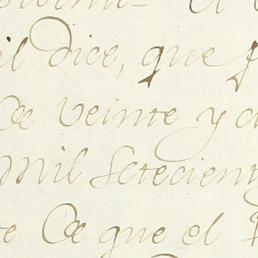 il dice, que
De veinte y
mil Setecient
te De que el